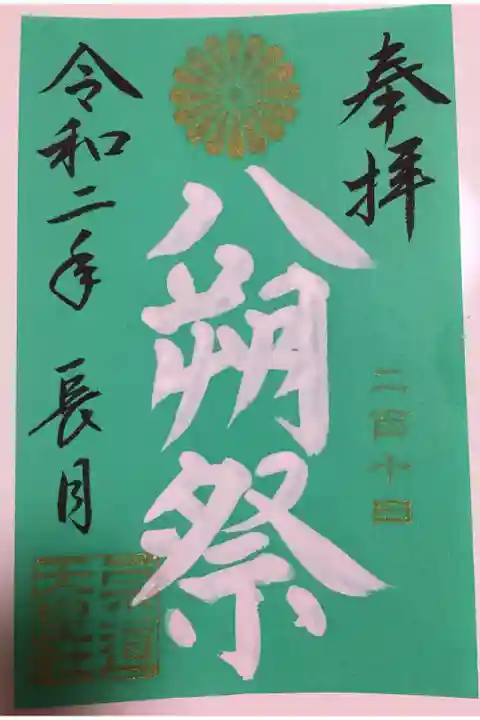 奉拝
二百十日
八朔祭
令和二年 長月